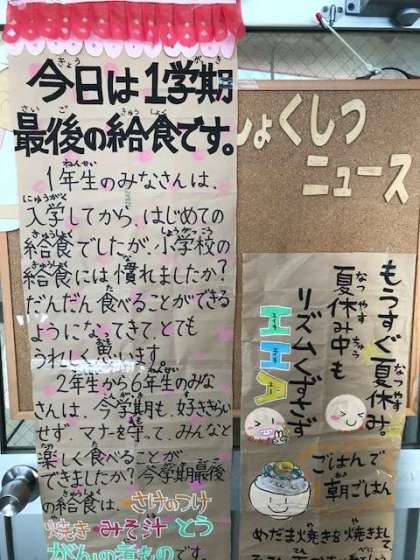 今日は1学期
最後の給食です。
1年生のみなさんは、
入学してから、はじめての
給食でしたが、小学校の
給食には慣れましたか?
だんだん食べることができる
ようになってきてとても
うれしく思います。
2年生から6年生のみな
さんは、今学期も、好ききらい
せず、マナーを守って、みんなと
楽しく食べることが
できましたか?今学期最後
の給食は、さけのつけ
焼き みそ汁 とう
がんの煮もの です
しょくしつ
ニュース
もうすぐ夏休み。
夏休み中も
リズムくずさず
エイエイオー
ごはんで
朝ごはん
めだま焼きを焼きまし